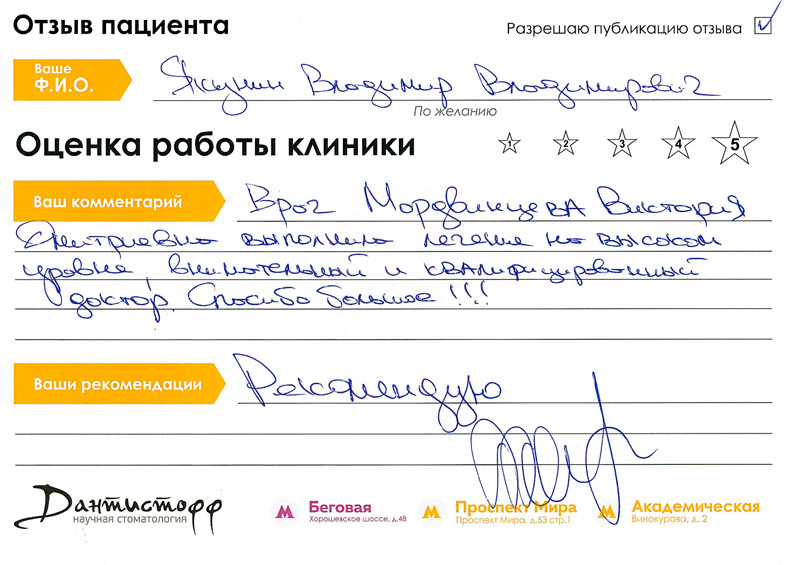 Отзыв пациента
Разрешаю публикацию отзыва
Ваше
Ф.И.О.
Якунин Владимир Владимирович
По желанию
Оценка работы клиники
1 2 3 4 5
Ваш комментарий
Врач Мордвинцева Виктория
Дмитриевна выполнила лечение на высоком
уровне, внимательный и квалифицированный
доктор. Спасибо большое!!!
Ваши рекомендации
Рекомендую
Дантистофф
научная стоматология
М Беговая
Хорошевское шоссе, д.48
М Проспект Мира
Проспект Мира, д.53 стр.1
М Академическая
Винокурова, д. 2